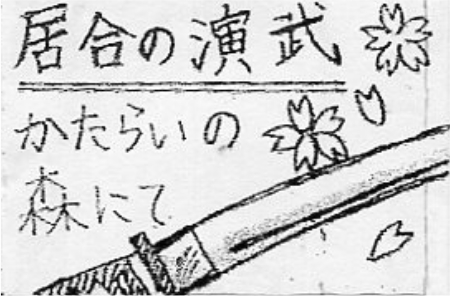 居合の演武
かたらいの
森にて